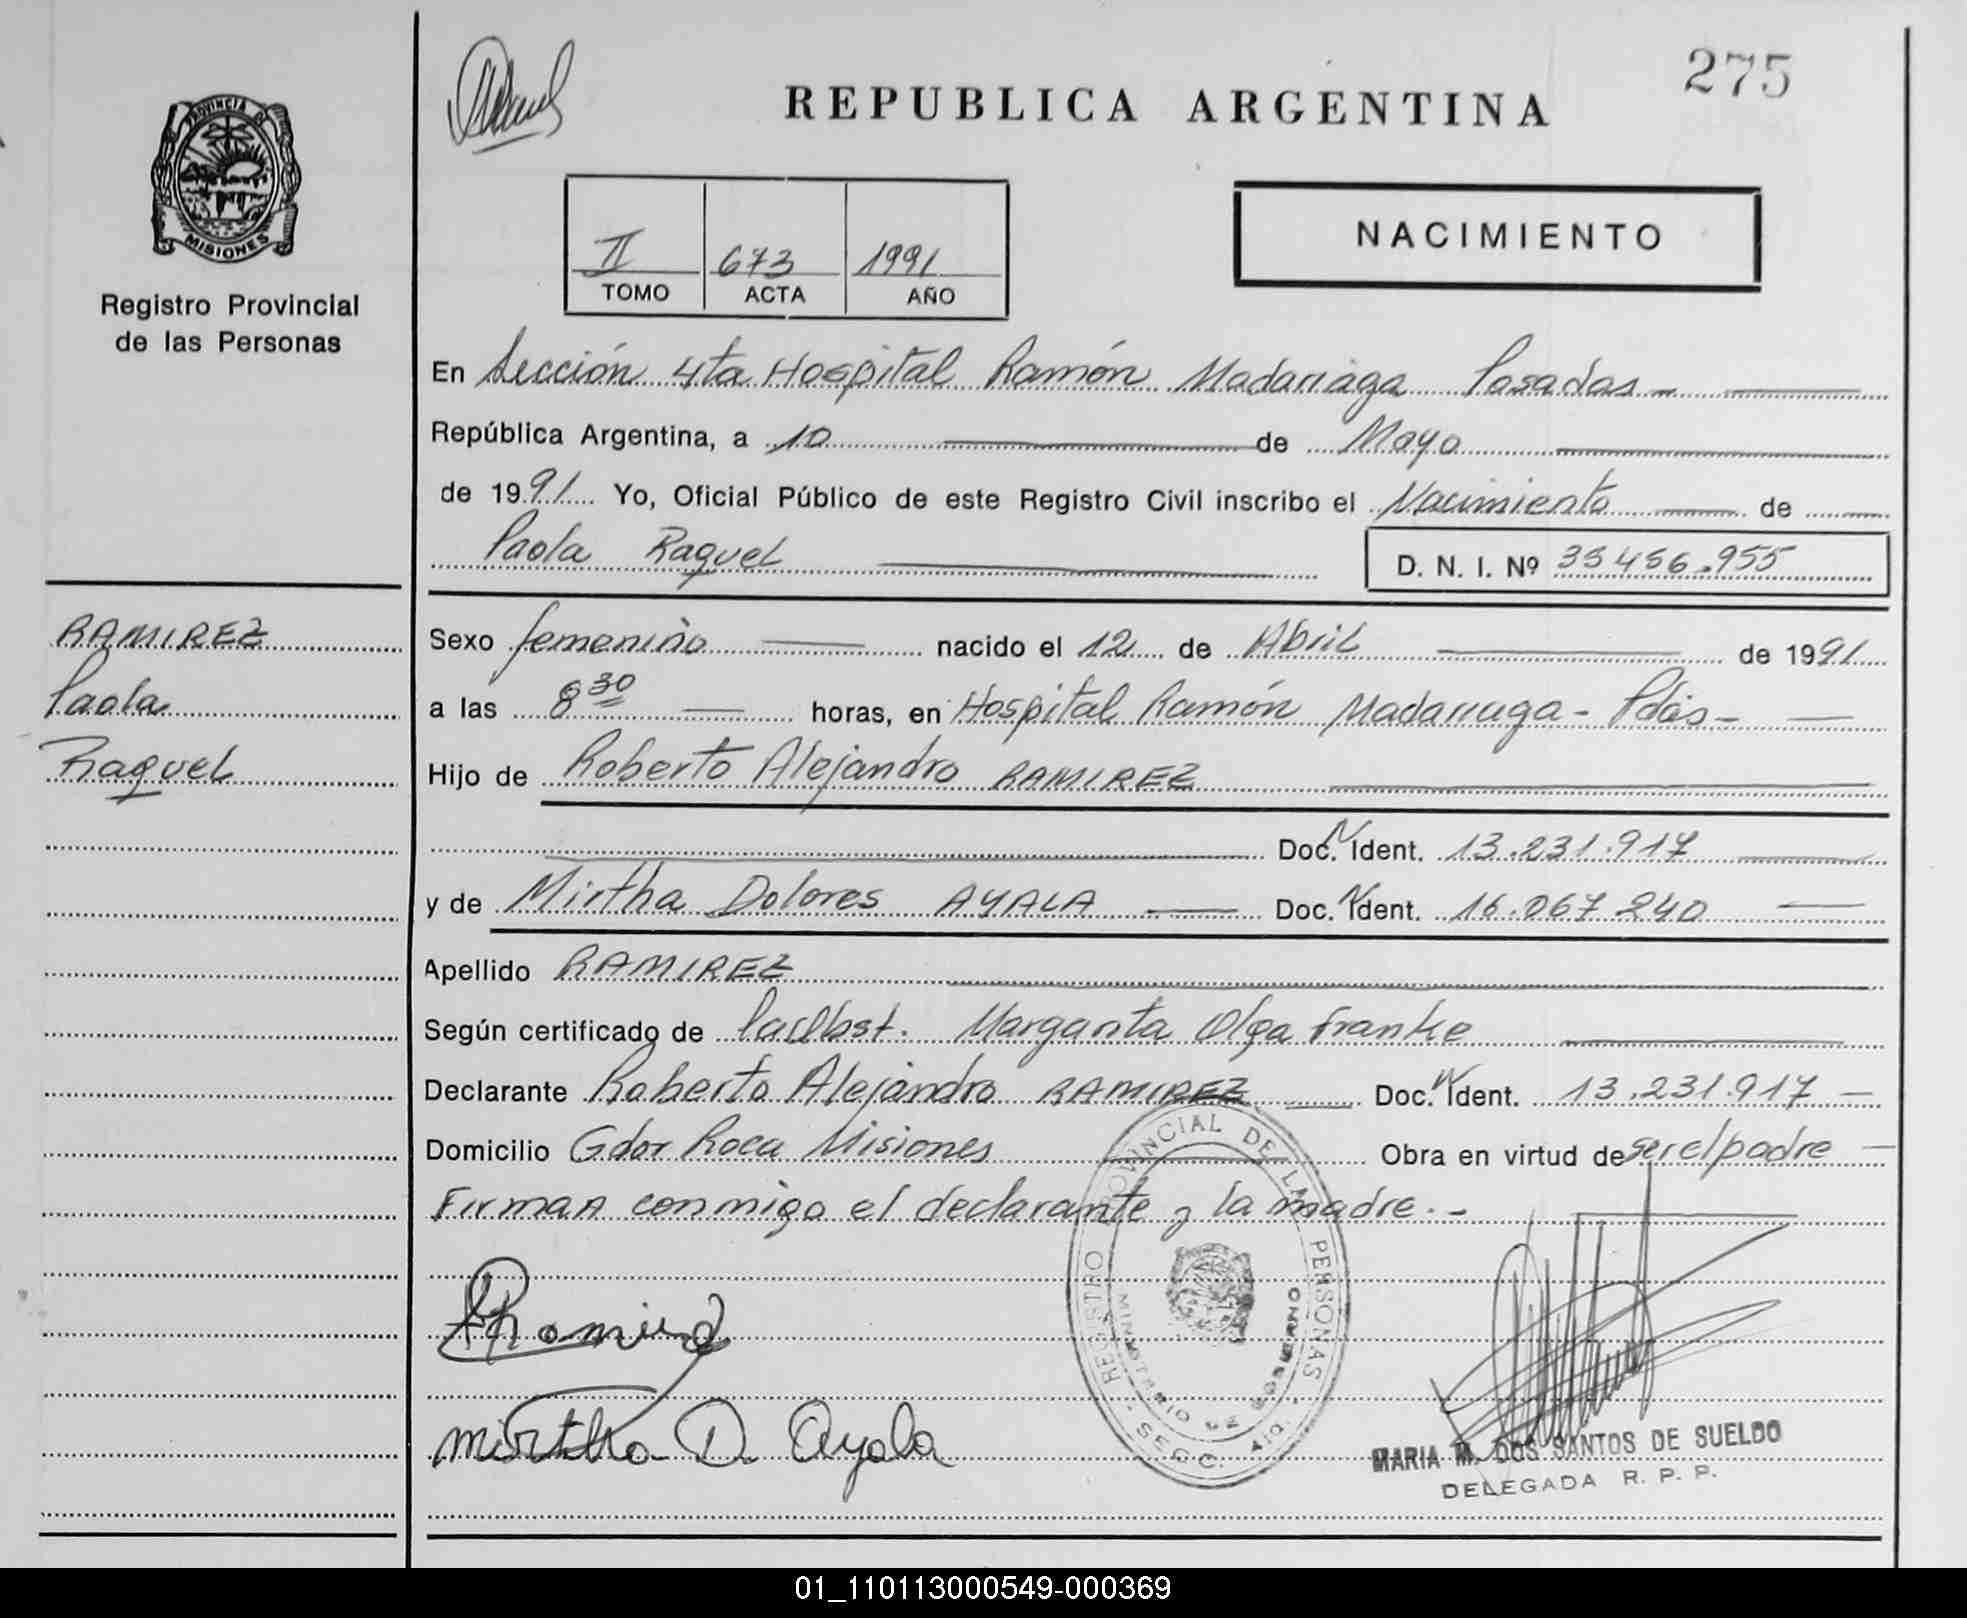 275
REPUBLICA ARGENTINA
PROVINCIA DE
MISIONES
Registro Provincial
de las Personas
NACIMIENTO
II 673 1991
TOMO ACTA AÑO
En Sección 4ta Hospital Ramón Madariaga Posadas -
República Argentina, a 10 de Mayo
de 1991 Yo, Oficial Público de este Registro Civil inscribo el Nacimiento de
Paola Raquel D. N. I. Nº 35456.955
RAMIREZ
Paola
Raquel
Sexo femenino nacido el 12 de Abril de 1991
a las 8 30 horas, en Hospital Ramón Madariaga - Pdas -
Hijo de Roberto Alejandro RAMIREZ
Doc. N Ident. 13.231.917
y de Mirtha Dolores AYALA Doc. N Ident. 16.067 240
Apellido RAMIREZ
Según certificado de Margarita Olga Franke
Declarante Roberto Alejandro RAMIREZ Doc. N Ident. 13.231.917 -
Domicilio Gdor Roca Misiones Obra en virtud de ser el padre -
Firman conmigo el declarante y la madre. -
Ramirez
Mirtha D. Ayala
REGISTRO PROVINCIAL DE LAS PERSONAS
MINISTERIO DE GOBIERNO
- SECC. 4ta. -
MARIA M. DOS SANTOS DE SUELDO
DELEGADA R. P. P.
01_110113000549-000369